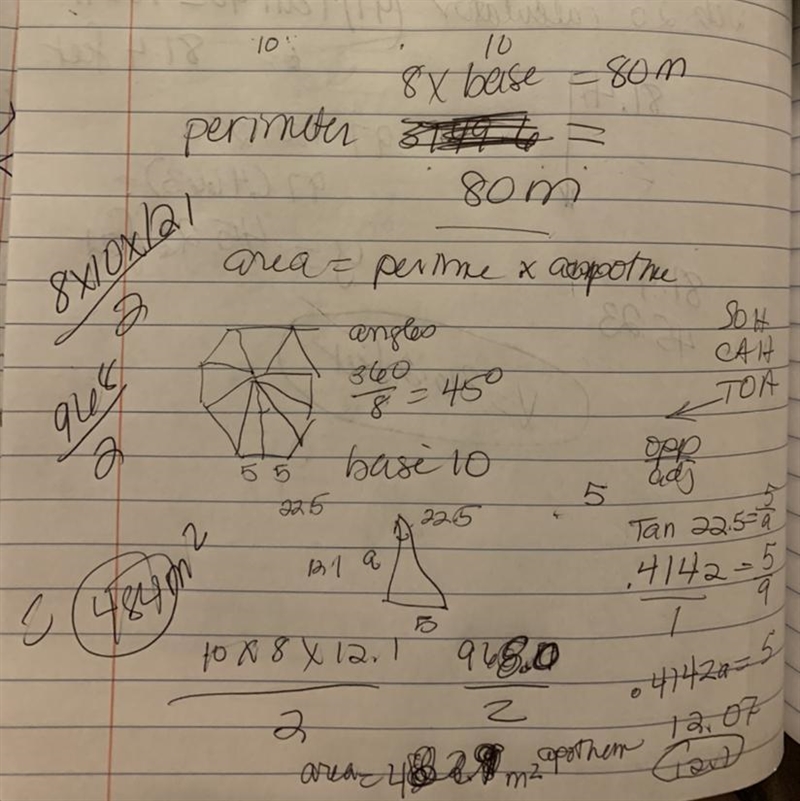 10
10
8 x base = 80m
perimeter =
80m
8x10x121
2
area = perime x apothe
angles
360
8 = 45°
SOH
CAH
TOA
968
2
5 5
base 10
opp
adj
22.5
5
22.5
Tan 22.5 = 5
a
12.1 a
5
.4142 = 5
a
1
484m²
10 x 8 x 12.1
2
968.0
2
.4142a = 5
12.07
12.1
area = m² apothem